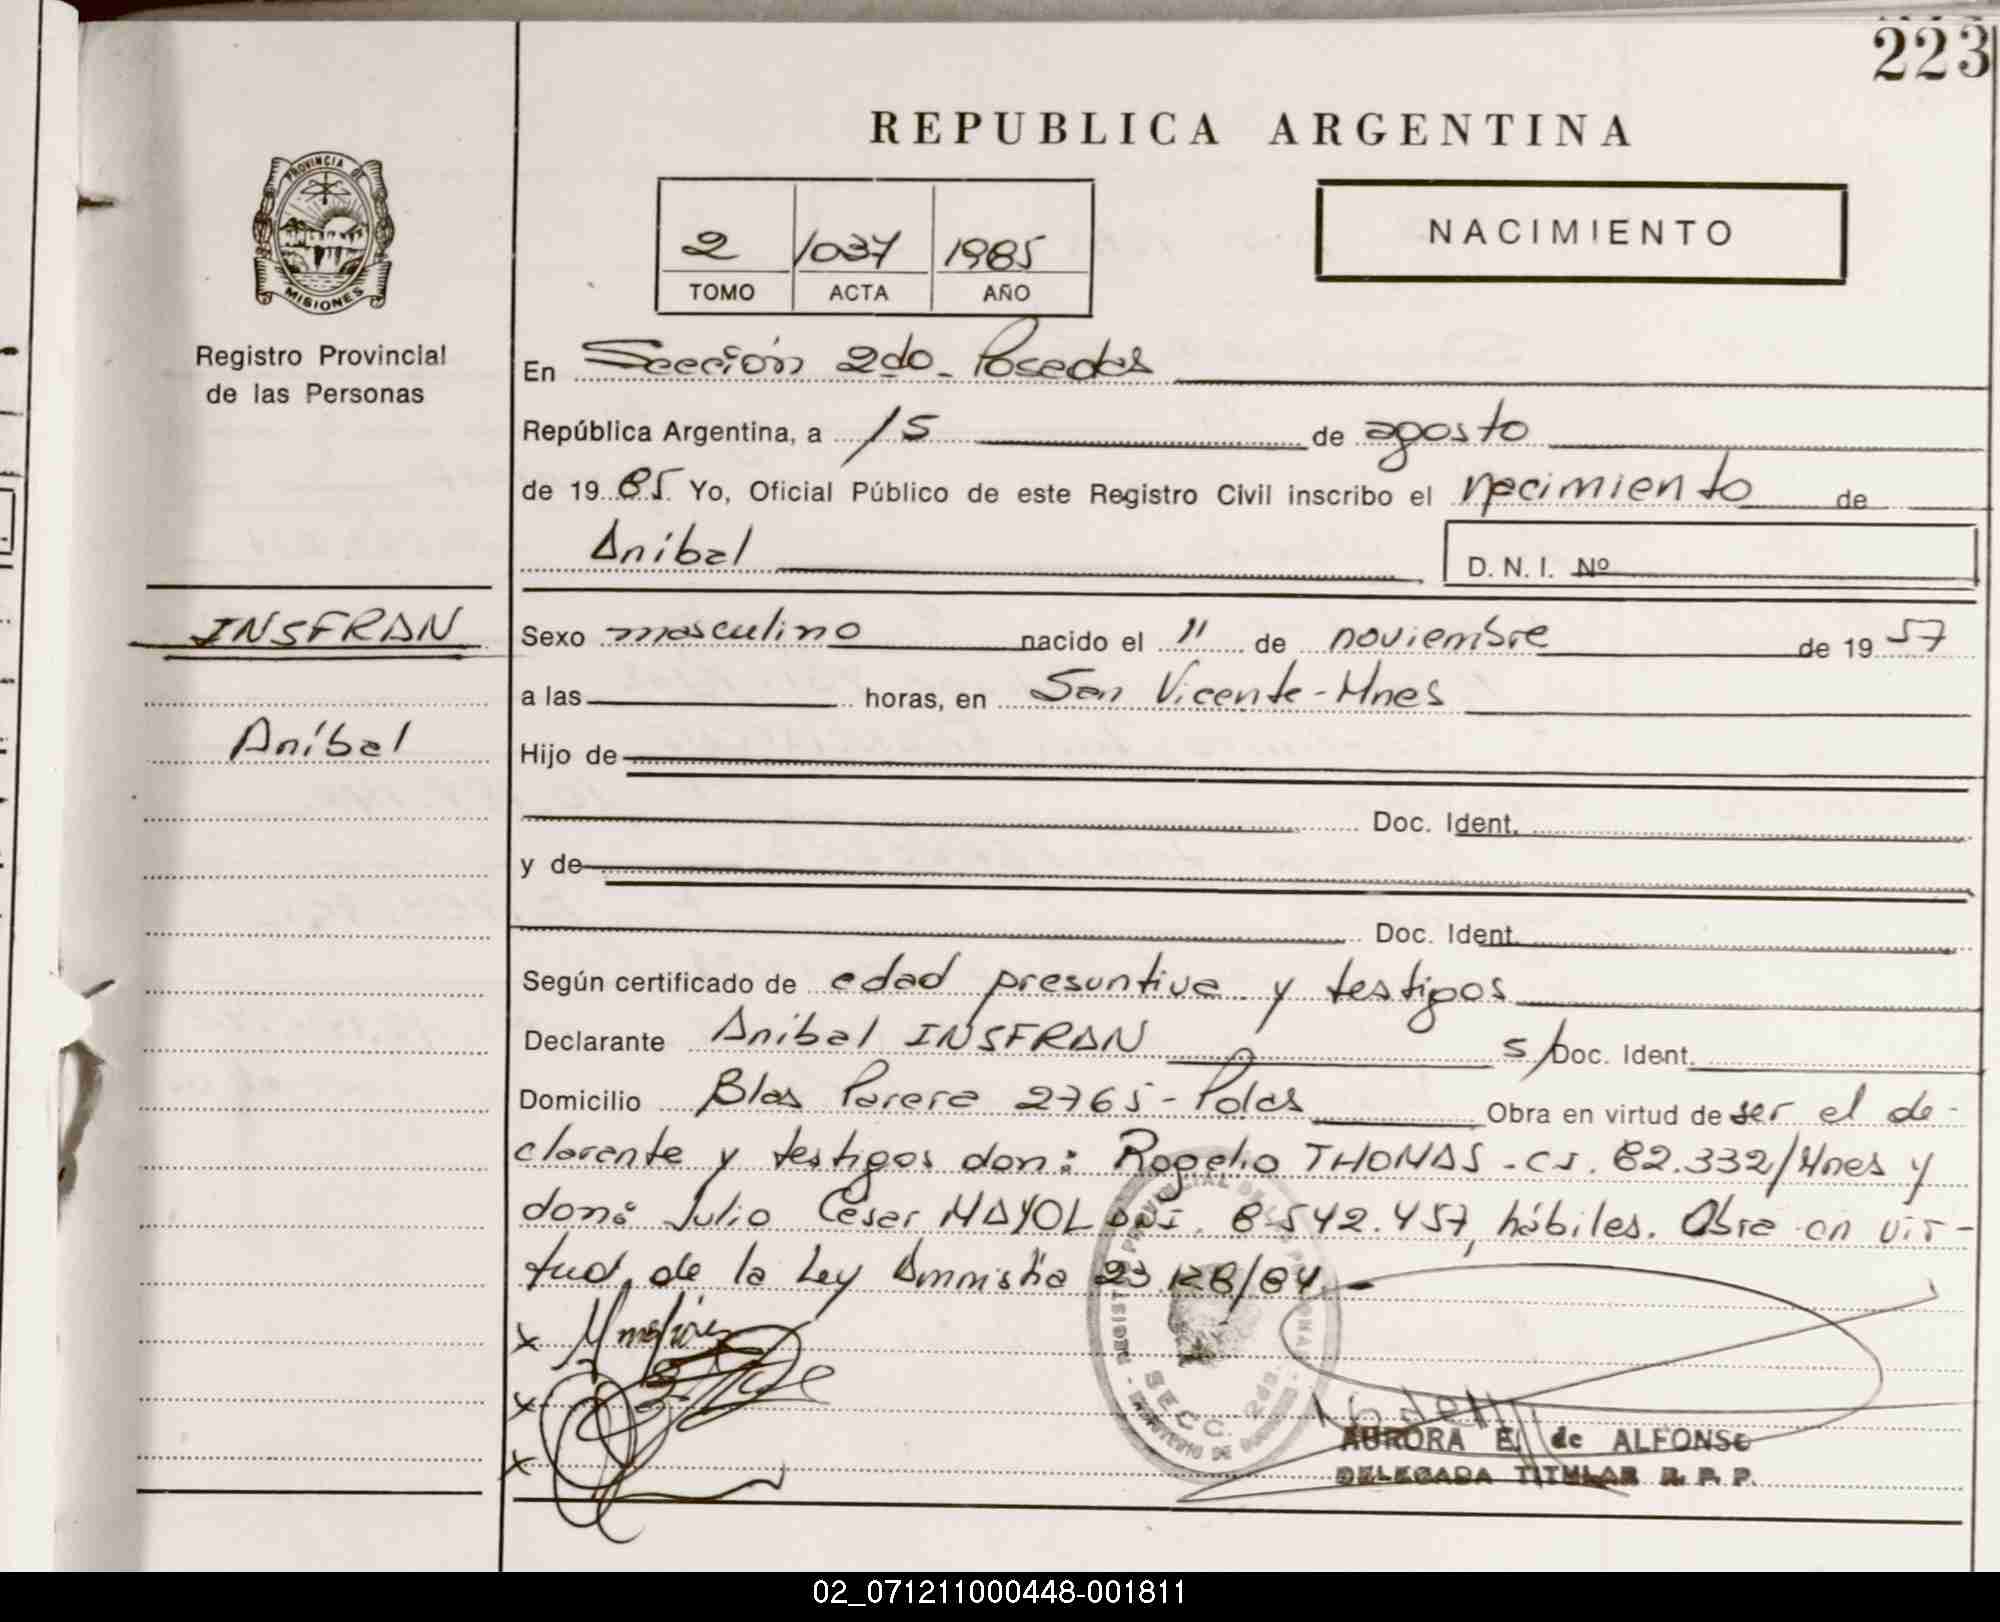 223
REPUBLICA ARGENTINA
PROVINCIA DE
MISIONES
Registro Provincial
de las Personas
2 1037 1985
TOMO ACTA AÑO
NACIMIENTO
En Sección 2do. Posadas
República Argentina, a 15 de agosto
de 19 85 Yo, Oficial Público de este Registro Civil inscribo el nacimiento de
Aníbal D. N. I. Nº
INSFRAN
Sexo masculino nacido el 11 de noviembre de 19 57
a las horas, en San Vicente - Mnes
Aníbal
Hijo de
Doc. Ident.
y de
Doc. Ident.
Según certificado de edad presuntiva y testigos
Declarante Aníbal INSFRAN s/Doc. Ident.
Domicilio Blas Parera 2765 - Pdas Obra en virtud de ser el de-
clarante y testigos don: Rogelio THOMAS - CI. 82.332/Mnes y
don: Julio César MAYOL DNI. 8.542.457, hábiles. Obra en vir-
tud de la Ley Amnistia 23.128/84.-
x
x
x
REGISTRO PROVINCIAL DE LAS PERSONAS
SECC. 2da.
MINISTERIO DE GOBIERNO
AURORA E. de ALFONSO
DELEGADA TITULAR R. P. P.
02_071211000448-001811